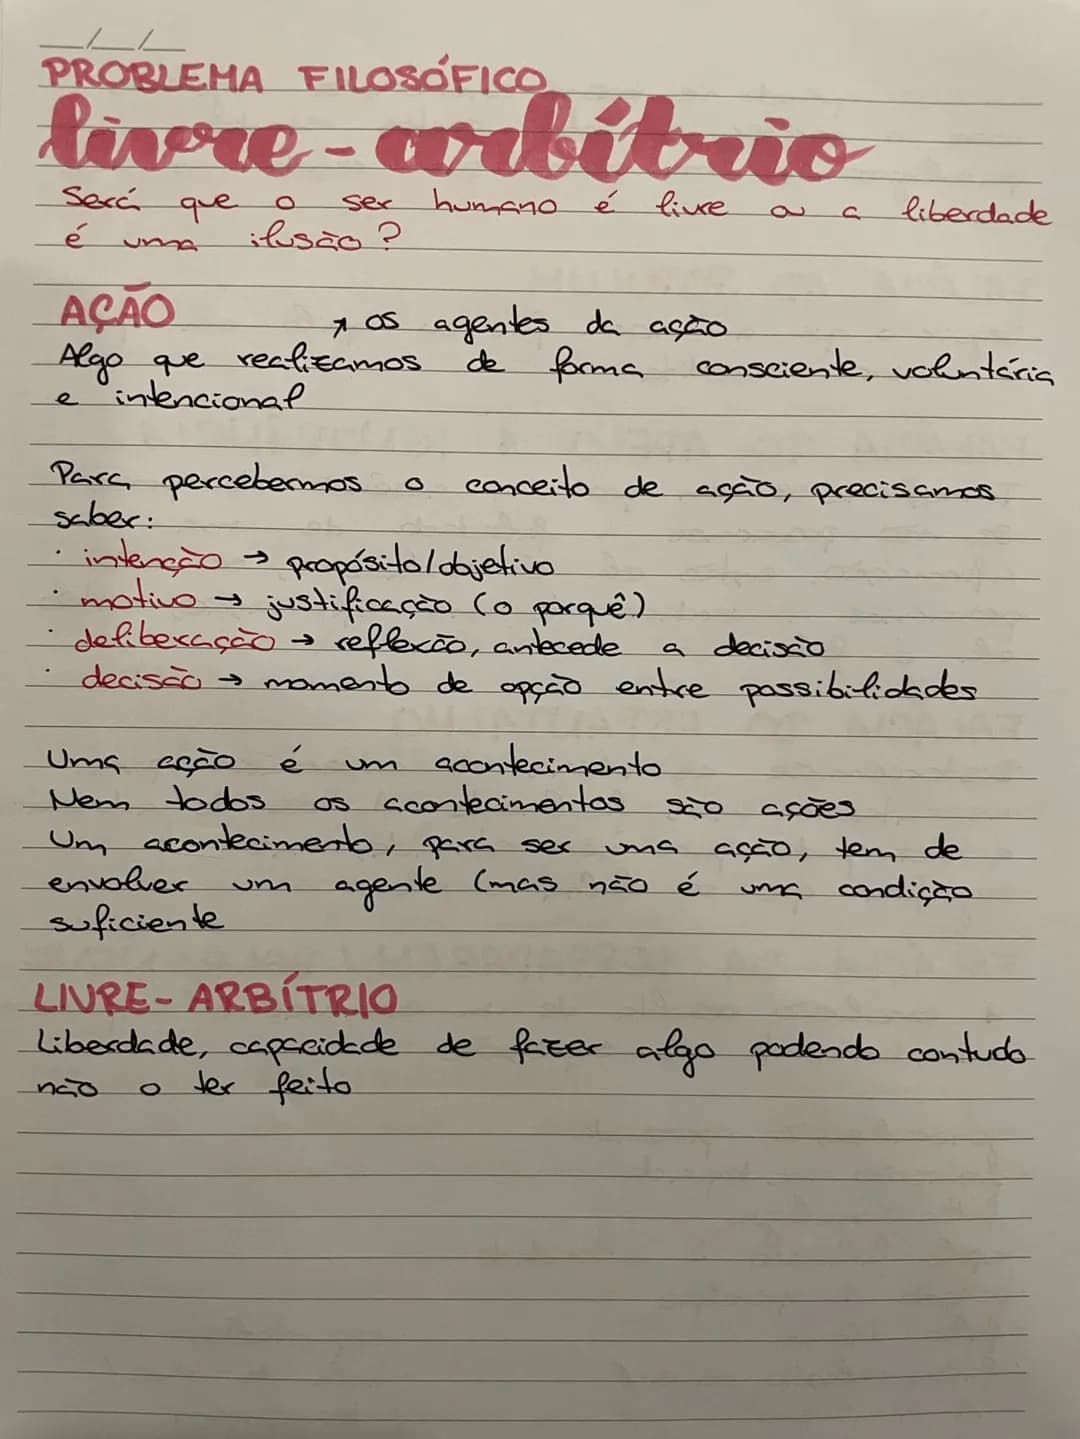 __/__/__
PROBLEMA FILOSÓFICO
livre-arbítrio
Será que o ser humano é livre ou a liberdade
é uma ilusão?
AÇÃO
↗ os agentes da ação
Algo que realizamos de forma consciente, voluntária
e intencional
Para percebermos o conceito de ação, precisamos
saber:
· intenção → propósito/objetivo
· motivo → justificação (o porquê)
· deliberação → reflexão, antecede a decisão
· decisão → momento de opção entre possibilidades
Uma ação é um acontecimento
Nem todos os acontecimentos são ações
Um acontecimento, para ser uma ação, tem de
envolver um agente (mas não é uma condição
suficiente
LIVRE-ARBÍTRIO
Liberdade, capacidade de fazer algo podendo contudo
não o ter feito